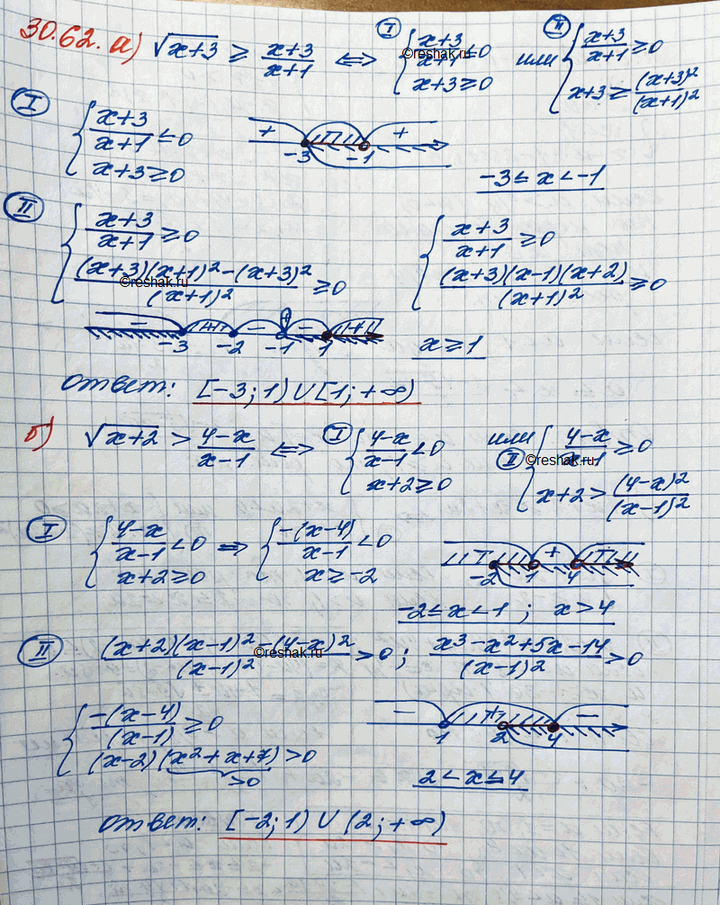 30.62. а) √(x+3) ≥ (x+3)/(x+1) ⟺ I { (x+3)/(x+1) ≤ 0 ; x+3 ≥ 0 или II { (x+3)/(x+1) ≥ 0 ; x+3 ≥ (x+3)²/(x+1)²
©reshak.ru
I { (x+3)/(x+1) ≤ 0 ; x+3 ≥ 0
+ − +
-3 -1
-3 ≤ x < -1
II { (x+3)/(x+1) ≥ 0 ; ((x+3)(x+1)²-(x+3)²)/(x+1)² ≥ 0 { (x+3)/(x+1) ≥ 0 ; (x+3)(x-1)(x+2)/(x+1)² ≥ 0
©reshak.ru
− + − − +
-3 -2 -1 1
x ≥ 1
ответ: [-3; 1) ∪ [1; +∞)
б) √(x+2) > (4-x)/(x-1) ⟺ I { (4-x)/(x-1) < 0 ; x+2 ≥ 0 или II { (4-x)/(x-1) ≥ 0 ; x+2 > (4-x)²/(x-1)²
©reshak.ru
I { (4-x)/(x-1) < 0 ; x+2 ≥ 0 ⟹ { -(x-4)/(x-1) < 0 ; x ≥ -2
− + −
-2 1 4
-2 ≤ x < 1 ; x > 4
II ((x+2)(x-1)²-(4-x)²)/(x-1)² > 0 ; (x³-x²+5x-14)/(x-1)² > 0
©reshak.ru
{ -(x-4)/(x-1) ≥ 0 ; (x-2)(x²+x+7) > 0
>0
− + −
1 2 4
2 < x ≤ 4
ответ: [-2; 1) ∪ (2; +∞)